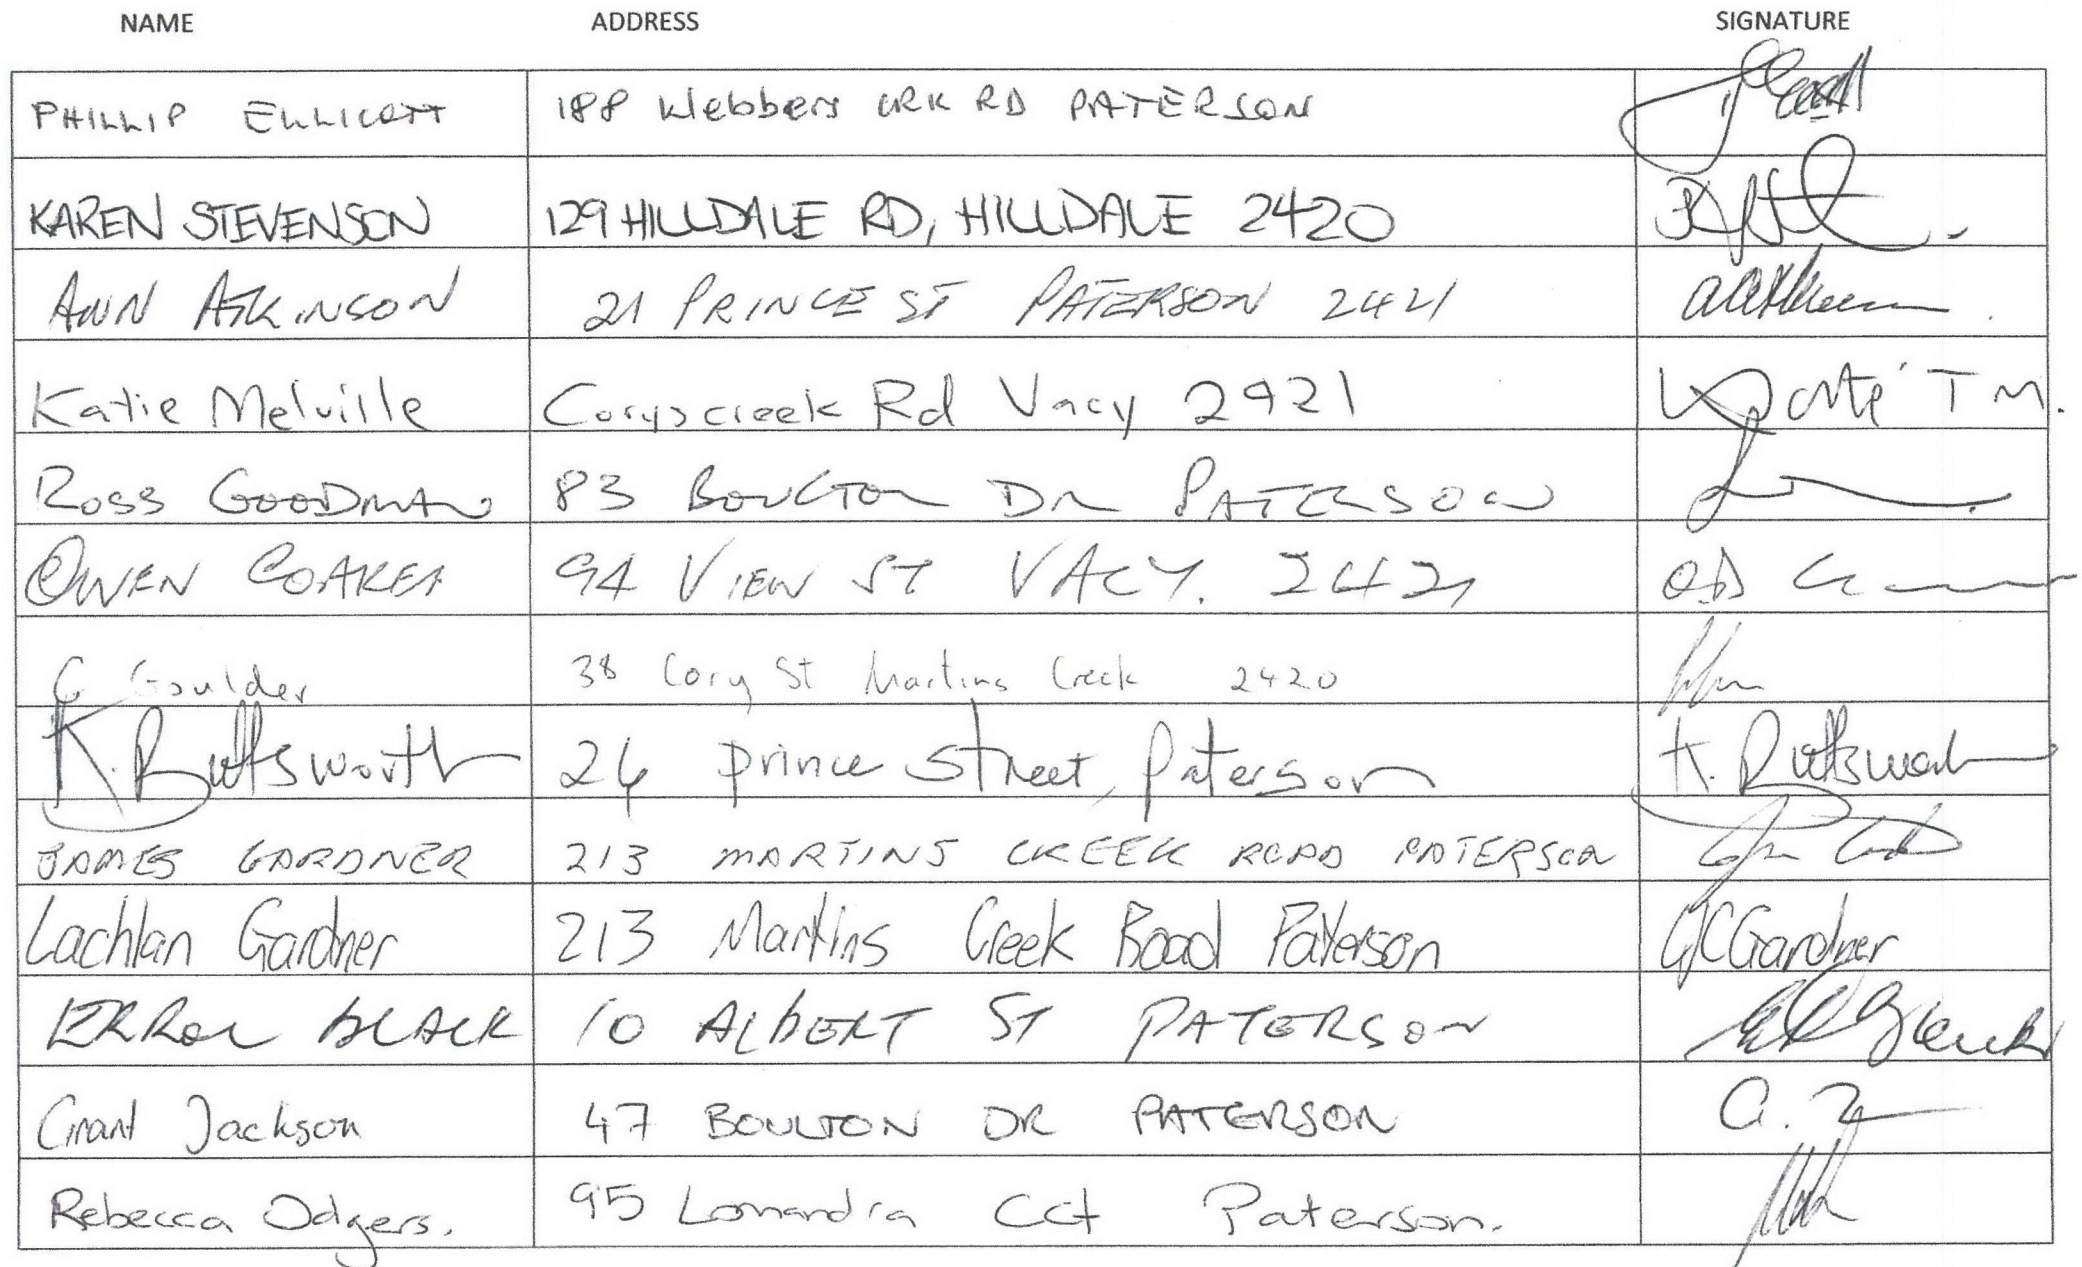 NAME ADDRESS SIGNATURE
PHILLIP ELLICOTT 188 Webbers CRK RD PATERSON
KAREN STEVENSON 129 HILLDALE RD, HILLDALE 2420
ANN ATKINSON 21 PRINCE ST PATERSON 2421
Katie Melville Coryscreek Rd Vacy 2421 Katie T M.
ROSS GOODMAN 83 BOULTON DR PATERSON
OWEN 94 VIEW ST VACY. 2421
G Goulder 38 Cory St Martins Creek 2420
K. Buttsworth 26 Prince Street, Paterson K. Buttsworth
JAMES GARDNER 213 MARTINS CREEK ROAD PATERSON
Lachlan Gardner 213 Martins Creek Road Paterson Gardner
ERROL BLACK 10 ALBERT ST PATERSON
Grant Jackson 47 BOULTON DR PATERSON
Rebecca Odgers. 95 Lomandra Cct Paterson.